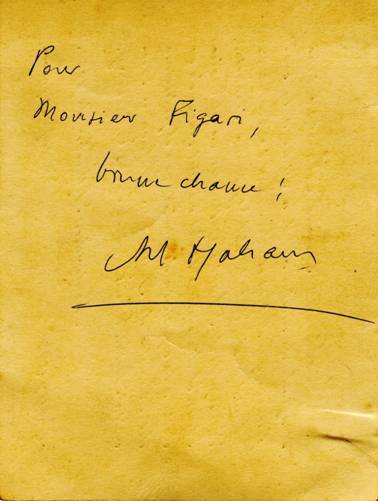 Pour
Monsieur Figari,
bonne chance !